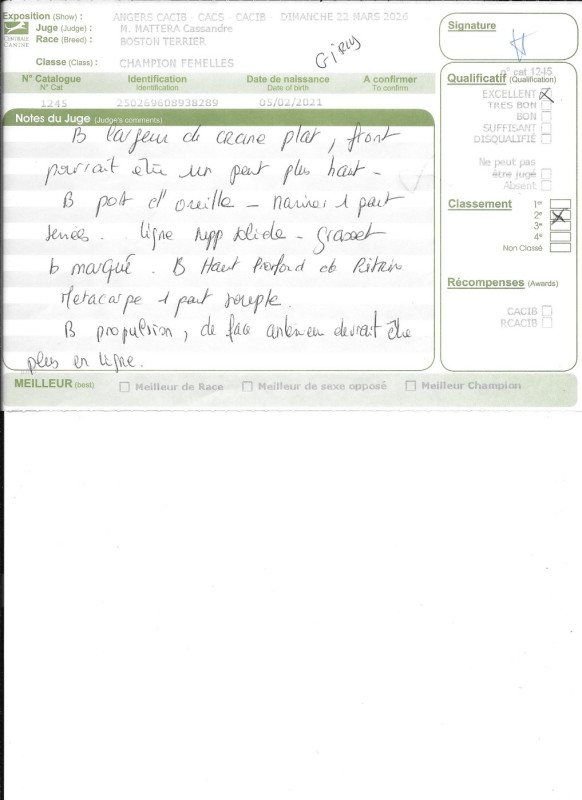 Exposition (Show) : ANGERS CACIB - CACS - CACIB - DIMANCHE 22 MARS 2026
Juge (Judge) : M. MATTERA Cassandre
Race (Breed) : BOSTON TERRIER
Classe (Class) : CHAMPION FEMELLES
CENTRALE CANINE
Signature
N° Catalogue Identification Date de naissance A confirmer
N° Cat Identification Date of birth To confirm
1245 250269608938289 05/02/2021
n° cat 1245
Qualificatif (Qualification)
EXCELLENT
TRES BON
BON
SUFFISANT
DISQUALIFIÉ
Ne peut pas
être jugé
Absent
Classement 1er
2e
3e
4e
Non Classé
Récompenses (Awards)
CACIB
RCACIB
Notes du Juge (Judge's comments)
B largeur de crane plat, front
pourrait etre un peut plus haut -
B port d'oreille - Narines 1 peut
serrées. ligne supp solide - grasset
b marqué. B Haut Profond de Poitrine
Metacarpe 1 peut souple.
B propulsion, de face anterieur devrait être
plus en ligne.
MEILLEUR (best) Meilleur de Race Meilleur de sexe opposé Meilleur Champion